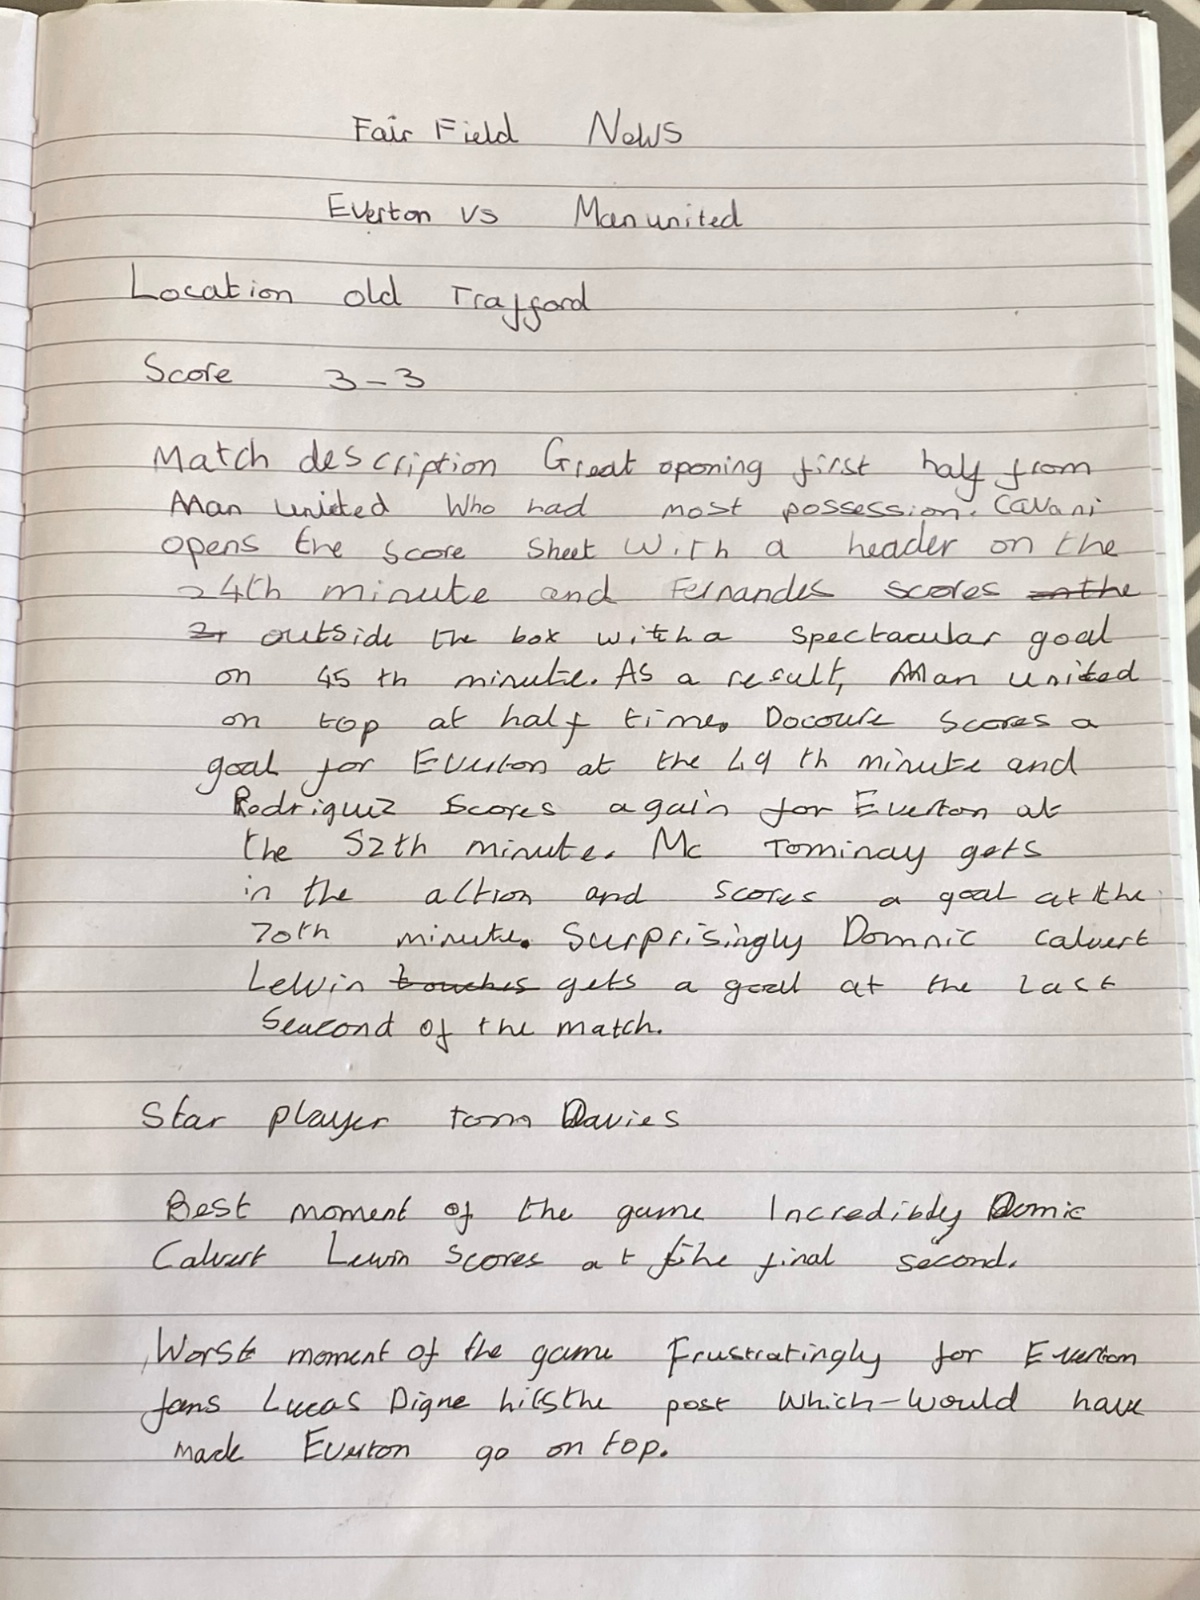 Fair Field News
Everton vs Manunited
Location old Trafford
Score 3-3
Match description Great opening first half from
Man united Who had most possession. Cavani
opens the score sheet with a header on the
24th minute and Fernandes scores onthe
outside the box with a spectacular goal
on 45 th minute. As a result, Man united
on top at half time. Docoure scores a
goal for Everton at the 49 th minute and
Rodriguez scores again for Everton at
the 52th minute. Mc Tominay gets
in the action and scores a goal at the
70th minute. Surprisingly Domnic calvert
Lewin touches gets a goal at the last
Seacond of the match.
Star player Tom Davies
Best moment of the game Incredibly Domic
Calvert Lewin scores at the final second.
Worst moment of the game Frustratingly for Everton
fans Lucas Digne hits the post which-would have
made Everton go on top.